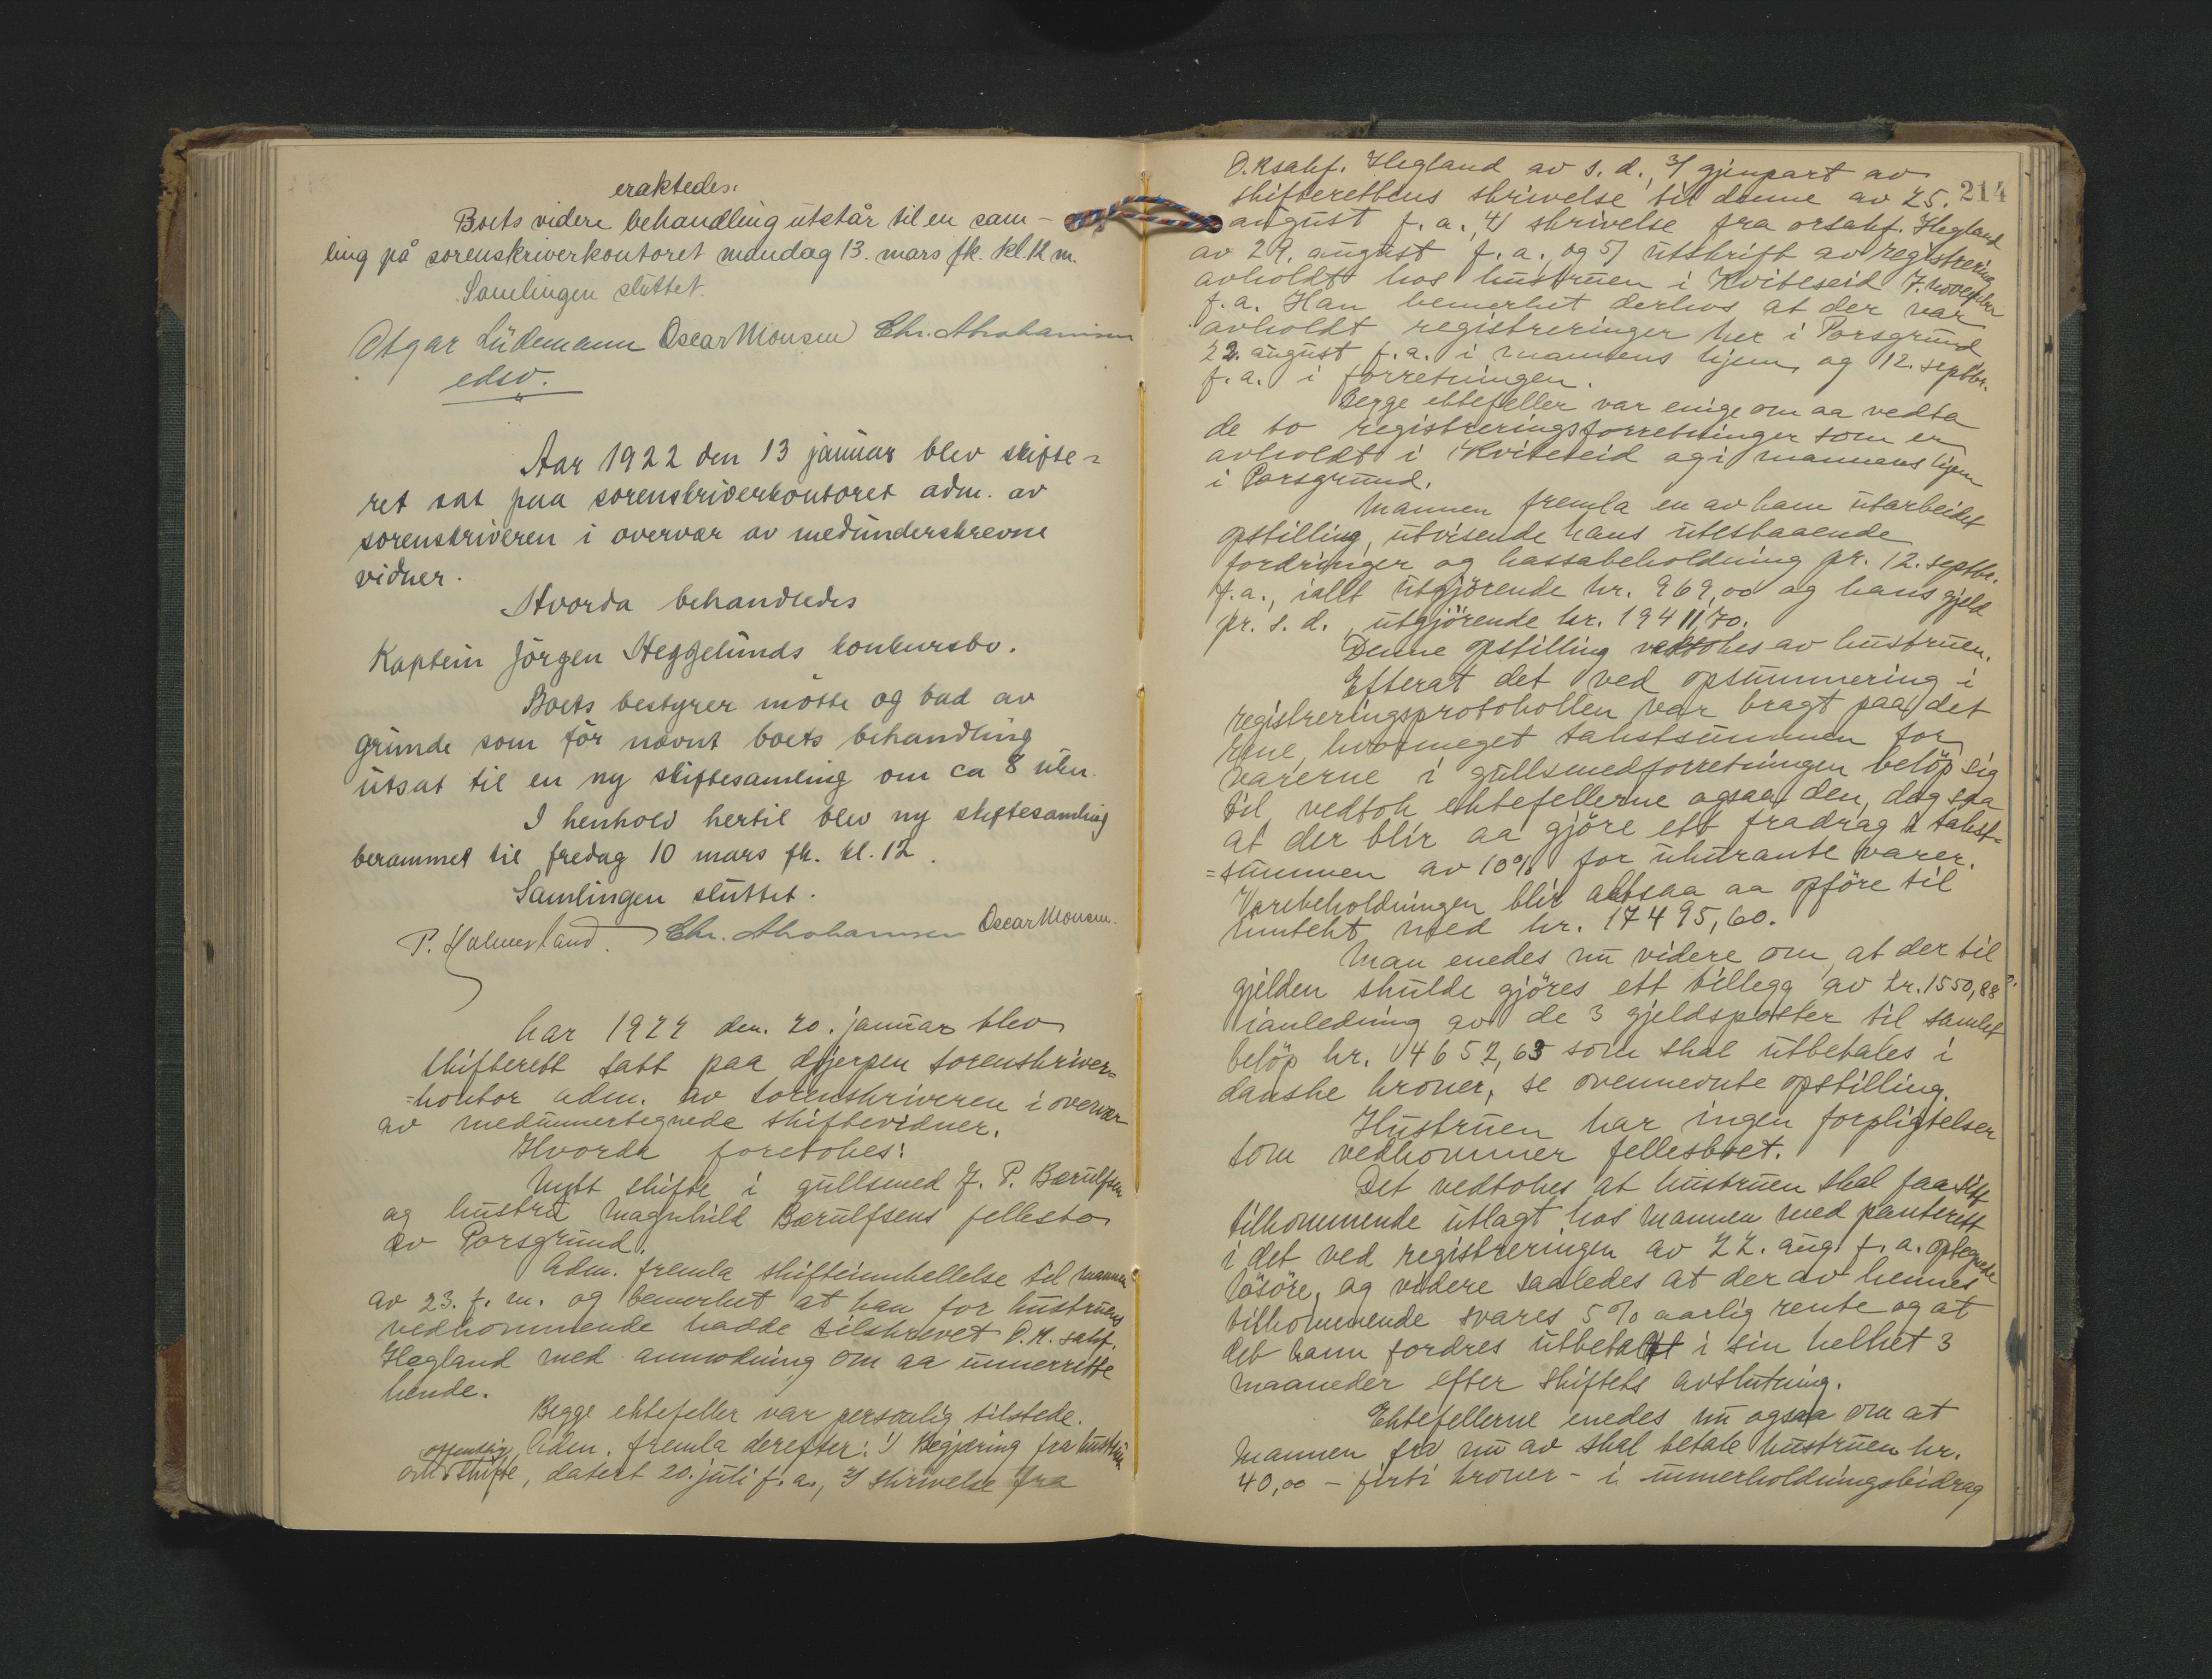 eraktedes:
Boets videre behandling utstår til en sam-
ling på sorenskriverkontoret mandag 13. mars fk. kl. 12 m.
Samlingen sluttet.
Otgar Lüdemann Oscar Monsen Chr. Abrahamsen
edsv.
Aar 1922 den 13 januar blev skifte-
ret sat paa sorenskriverkontoret adm. av
sorenskriveren i overvær av medunderskrevne
vidner.
Hvorda behandledes
Kaptein Jörgen Heggelunds konkursbo.
Boets bestyrer mötte og bad av
grunde som för nævnt boets behandling
utsat til en ny skiftesamling om ca 8 uker.
I henhold hertil blev ny skiftesamling
berammet til fredag 10 mars fk. kl. 12.
Samlingen sluttet.
P. Holmesland. Chr. Abrahamsen Oscar Monsen.
Aar 1922 den 20. januar blev
skifterett satt paa Gjerpen sorenskriver=
=kontor adm. av sorenskriveren i overvær
av medunnertegnede skiftevidner.
Hvorda foretokes:
Nytt skifte i gullsmed J. P. Bærulfsen
og hustru Magnhild Bærulfsens fellesbo
av Porsgrund.
Adm. fremla skifteinnkallelse til mannen
av 23. f. m. og bemerket at han for hustruens
vedkommende hadde tilskrevet O.R. sakf.
Hegland med anmodning om aa unnerrette
hende.
Begge ektefeller var personlig tilstede.
Adm. fremla derefter: 1/ Begjæring fra hustruen
om offentlig skifte, datert 20. juli f. a., 2/ skrivelse fra
214
O.Rsakf. Hegland av s. d., 3/ gjenpart av
skifterettens skrivelse til denne av 25.
august f. a., 4/ skrivelse fra orsakf. Hegland
av 29. august f. a., og 5/ utskrift av registrering
avholdt hos hustruen i Kviteseid 7. november
f. a. Han bemerket derhos at der var
avholdt registreringer her i Porsgrund
22. august f. a. i mannens hjem, og 12. septbr.
f. a. i forretningen.
Begge ektefeller var enige om aa vedta
de to registreringsforretninger som er
avholdt i Kviteseid og i mannens hjem
i Porsgrund.
Mannen fremla en av ham utarbeidet
opstilling, utvisende hans utestaaende
fordringer og kassabeholdning pr. 12. septbr.
f. a., iallt utgjörende kr. 969,00 og hans gjeld
pr. s. d., utgjörende kr. 19411,70.
Denne opstilling vedtokes av hustruen.
Efterat det ved opsummering i
registreringsprotokollen var bragt paa det
rene, hvormeget takstsummen for
varerne i gullsmedforretningen belöp sig
til vedtok ektefellerne ogsaa den, dog saa
at der blir aa gjöre ett fradrag i takst=
=summen av 10% for ukurante varer.
Varebeholdningen blir altsaa aa opföre til
inntekt med kr. 17495,60.
Man enedes nu videre om, at der til
gjelden skulde gjöres ett tillegg av kr. 1550,88
ianledning av de 3 gjeldsposter til samlet
belöp kr. 4652,63 som skal utbetales i
danske kroner, se ovennevnte opstilling.
Hustruen har ingen forpligtelser
som vedkommer fellesboet.
Det vedtokes at hustruen skal faa sitt
tilkommende utlagt hos mannen med panterett
i det ved registreringen av 22. aug. f. a. optegnede
lösöre, og videre saaledes at der av hennes
tilkommende svares 5% aarlig rente og at
det kann fordres utbetalt i sin helhet 3
maaneder efter skiftets avslutning.
Ektefellerne enedes nu ogsaa om at
mannen fra nu av skal betale hustruen kr.
40,00 - firti kroner - i unnerholdningsbidrag